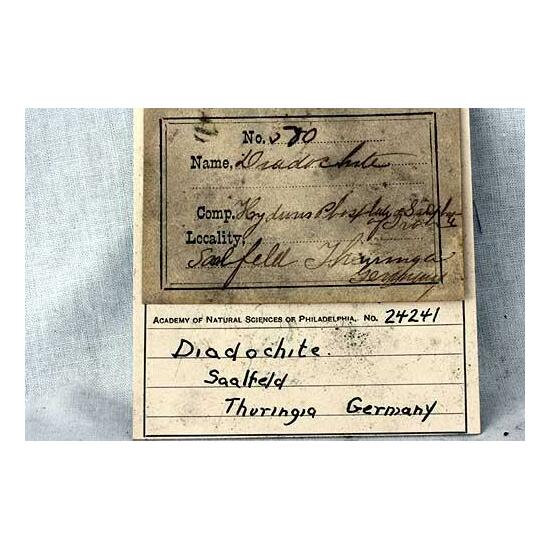 No. 580
Name, Diadochite
Comp. Hydrous Phosphate & Sulphate
of Iron
Locality,
Saalfeld Thuringia
Germany
ACADEMY OF NATURAL SCIENCES OF PHILADELPHIA, No. 24241
Diadochite.
Saalfeld
Thuringia Germany